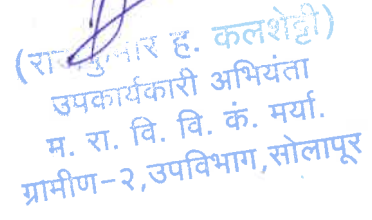 ह. कलशेट्टी)
उपकार्यकारी अभियंता
म. रा. वि. वि. कं. मर्या.
ग्रामीण-२,उपविभाग,सोलापूर